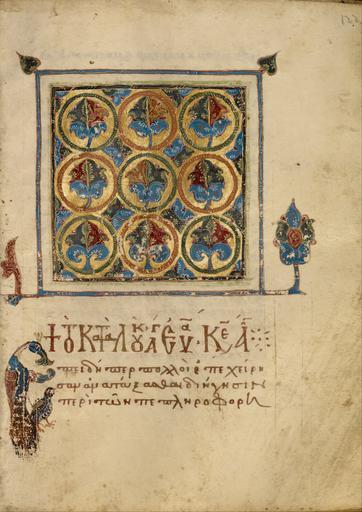 + τὸ κατὰ λουκ ἁγ εὐα · κε α
πειδήπερ πολλοὶ ἐπεχείρη
σαν ἀναταξασθαι διήγησιν
περὶ τῶν πεπληροφορη